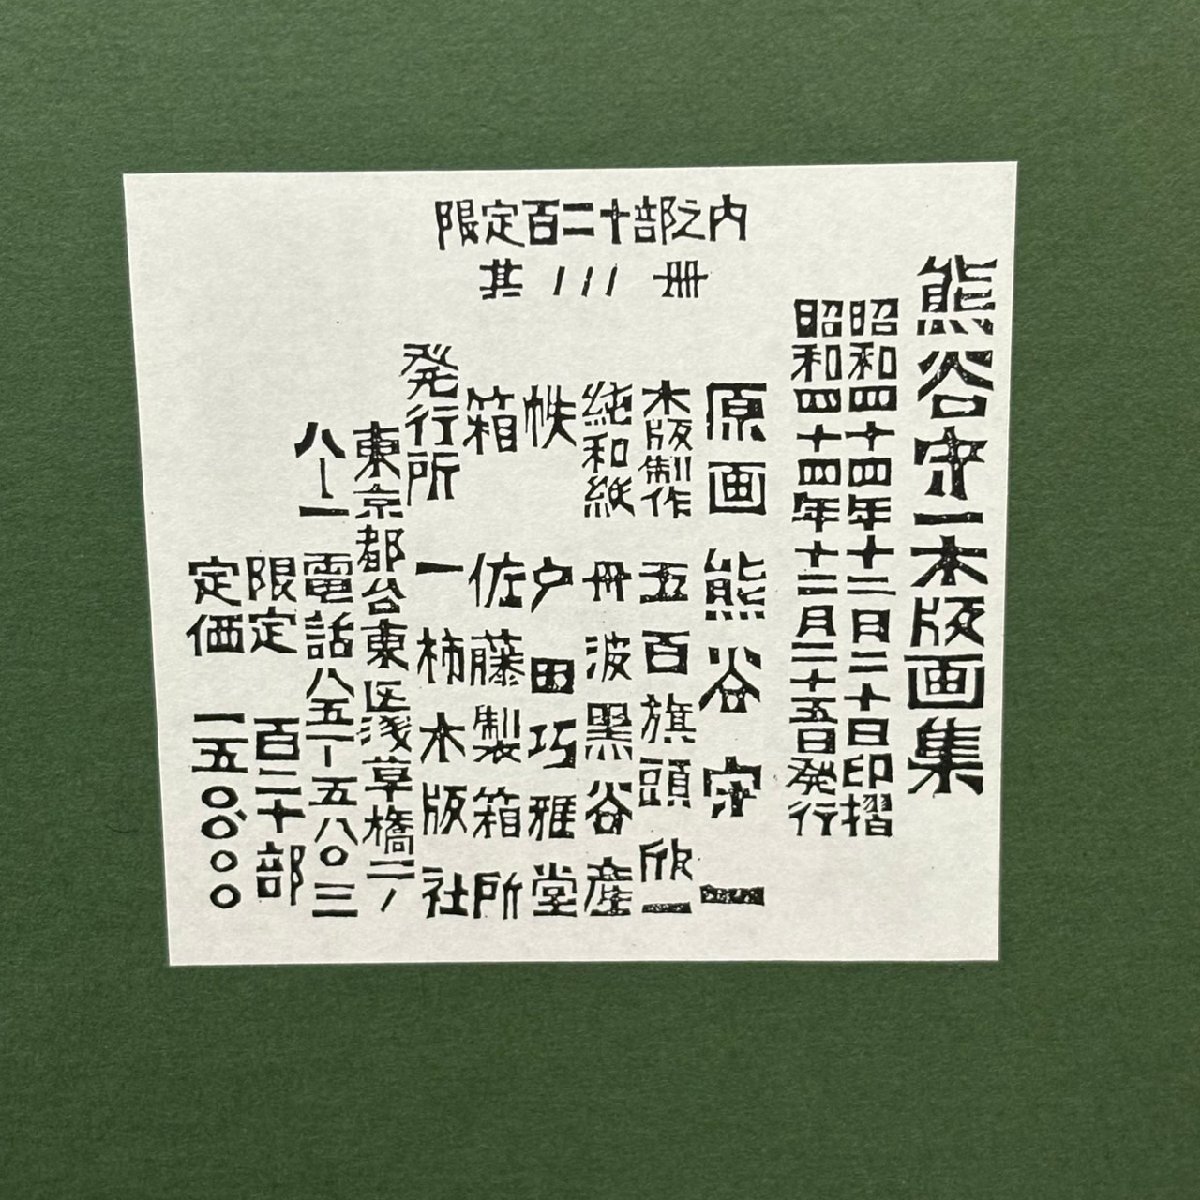 限定百二十部之内
其 111 冊
熊谷守一木版画集
昭和四十四年十二月二十日印摺
昭和四十四年十二月二十五日発行
原画 熊谷守一
木版制作 五百旗頭欣一
純和紙 丹波黒谷産
帙 戸田巧雅堂
箱 佐藤製箱所
発行所 一柿木版社
東京都台東区浅草橋二ノ
八ー一 電話八五一ー五八〇三
限定 百二十部
定価 一五〇、〇〇〇